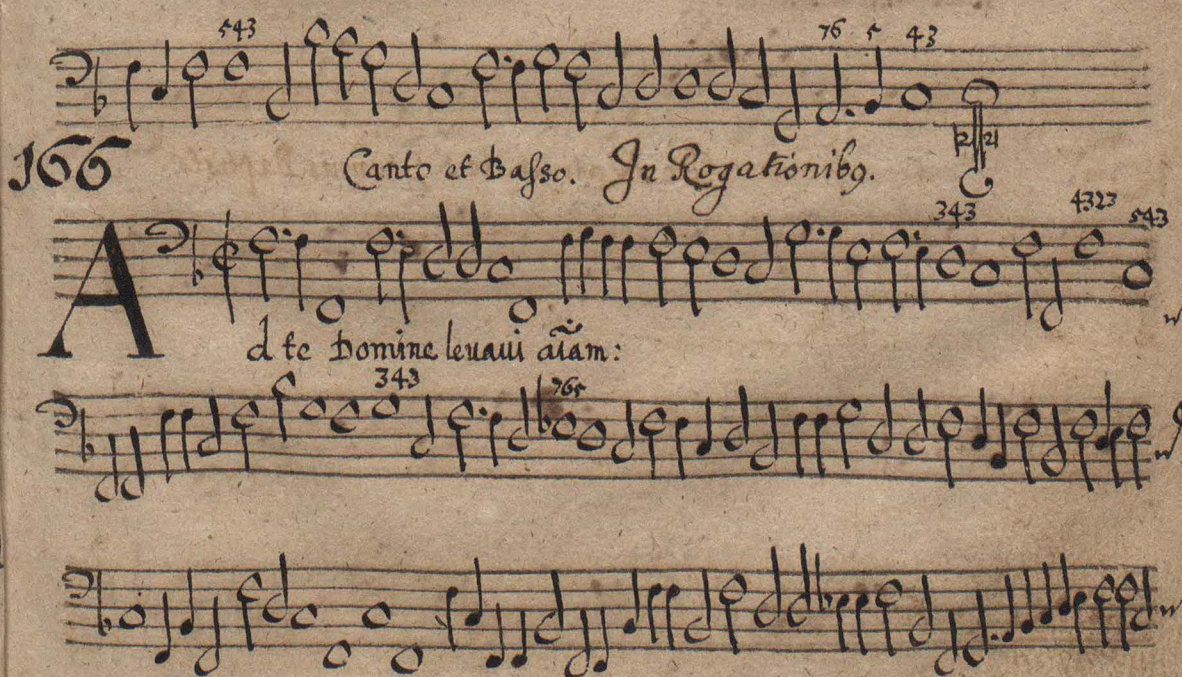 543 76 5 43
166 Canto et Basso. In Rogationibꝯ.
343 4323 543
Ad te Domine levavi aīam:
343 765